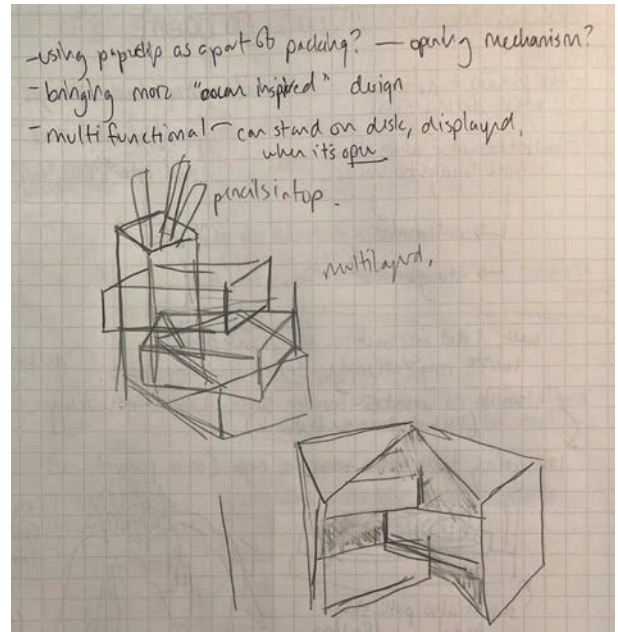 -using paperclip as a part of packing? — opening mechanism?
- bringing more "ocean inspired" design
- multifunctional - can stand on disk, displayed,
when its open
pencils in top.
multilayerd,